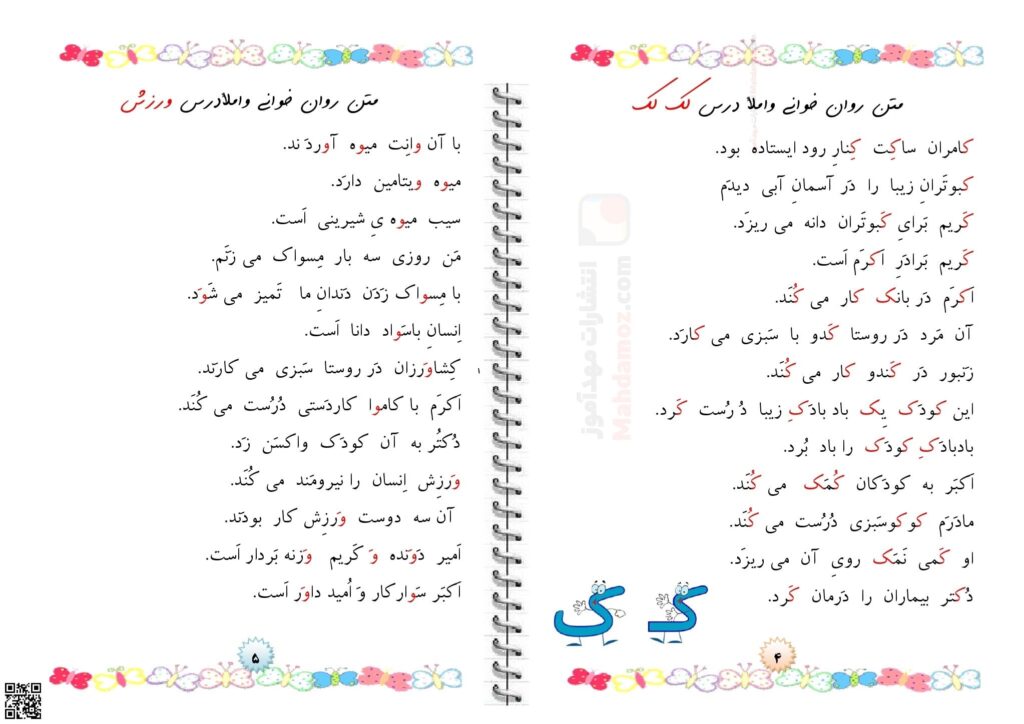 متن روان خوانی و املا درس لک لک
کامران ساکِت کِنارِ رود ایستاده بود.
کَبوتَرانِ زیبا را دَر آسمانِ آبی دیدَم
کَریم بَرایِ کَبوتَران دانه می ریزَد.
کَریم بَرادَرِ اَکرَم اَست.
اَکرَم دَر بانک کار می کُنَد.
آن مَرد دَر روستا کَدو با سَبزی می کارَد.
زَنبور دَر کَندو کار می کُنَد.
این کودَک یِک باد بادَکِ زیبا دُرُست کَرد.
بادبادَکِ کودَک را باد بُرد.
اَکبَر به کودَکان کُمَک می کُنَد.
مادَرَم کوکوسَبزی دُرُست می کُنَد.
او کَمی نَمَک رویِ آن می ریزَد.
دُکتر بیماران را دَرمان کَرد.
کـ ک
۴
انتشارات مهدآموز
Mahdamoz.com
متن روان خوانی و املادرس ورزش
با آن وانِت میوه آوَردَند.
میوه ویتامین دارَد.
سیب میوه یِ شیرینی اَست.
مَن روزی سه بار مِسواک می زَنَم.
با مِسواک زَدَن دَندانِ ما تَمیز می شَوَد.
اِنسانِ باسَواد دانا اَست.
کِشاوَرزان دَر روستا سَبزی می کارَند.
اَکرَم با کاموا کاردَستی دُرُست می کُنَد.
دُکتُر به آن کودَک واکسَن زَد.
وَرزِش اِنسان را نیرومَند می کُنَد.
آن سه دوست وَرزِش کار بودَند.
اَمیر دَوَنده وَ کَریم وَزنه بَردار اَست.
اَکبَر سَوارکار وَ اُمید داوَر اَست.
۵